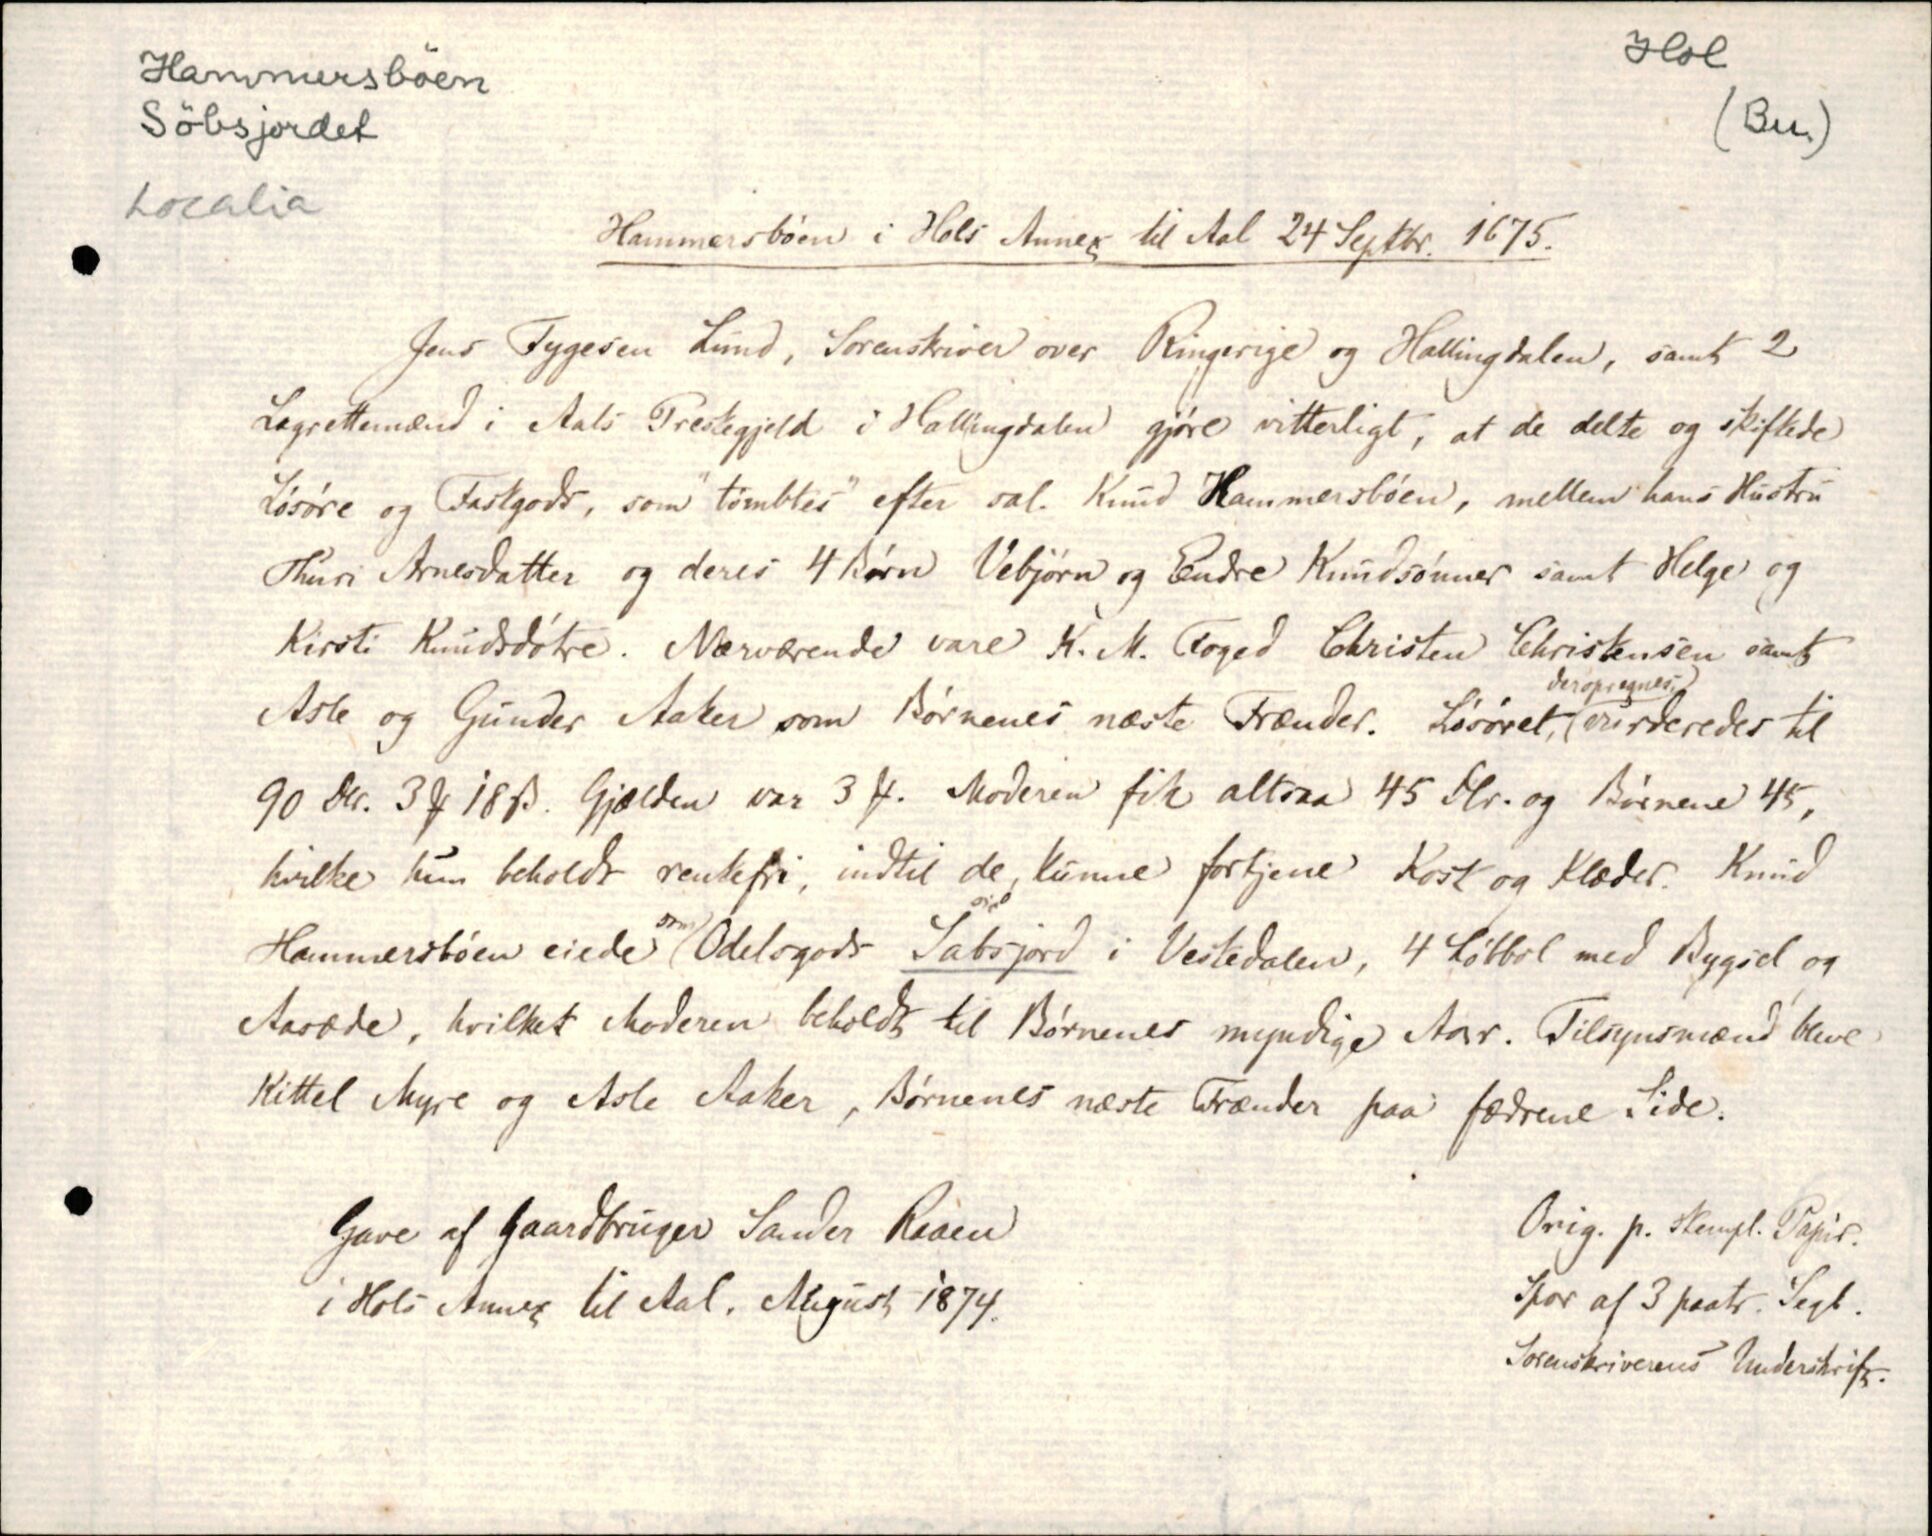 Hammersböen
Söbsjordet
Hol
(Bu.)
Localia
Hammersbóen i Hols Annex til Aal 24 Septbr. 1675.
Jens Tygesen Lund, Sorenskriver over Ringerige og Hallingdalen, samt 2
Lagrettemænd i Aals Prestegjeld i Hallingdalen gjóre vitterligt, at de delte og skiftede
Lósóre og Fastgods, som "tómbtes" efter sal. Knud Hammersbóen, mellem hans Hustru
Thuri Arnesdatter og deres 4 Bórn Vebjórn og Endre Knudsónner samt Helge og
Kirsti Knudsdótre. Nærværende vare K. M. Foged Christen Christensen samt
Asle og Gunder Aaker som Bórnenes næste Frænder. Lósóret, (deropregnes,) vurderedes til
90 Dlr. 3 ƒ 18 ß. Gjælden var 3 ƒ. Moderen fik altsaa 45 Dlr. og Bórnene 45,
hvilke hun beholdt rentefri, indtil de kunne fortjene Kost og Klæder. Knud
Hammersbóen eiede som Odelsgods Sabsjord i Vestedalen, 4 Lóbbol med Bygsel og
Aasæde, hvilket Moderen beholdt til Bórnenes myndige Aar. Tilsynsmænd bleve
Kittel Myre og Asle Aaker, Bórnenes næste Frænder paa fædrene Side.
Gave af Gaardbruger Sander Raaen
i Hols Annex til Aal. August 1874.
Orig. p. stempl. Papir.
Spor af 3 paatr. Segl.
Sorenskriverens Underskrift.